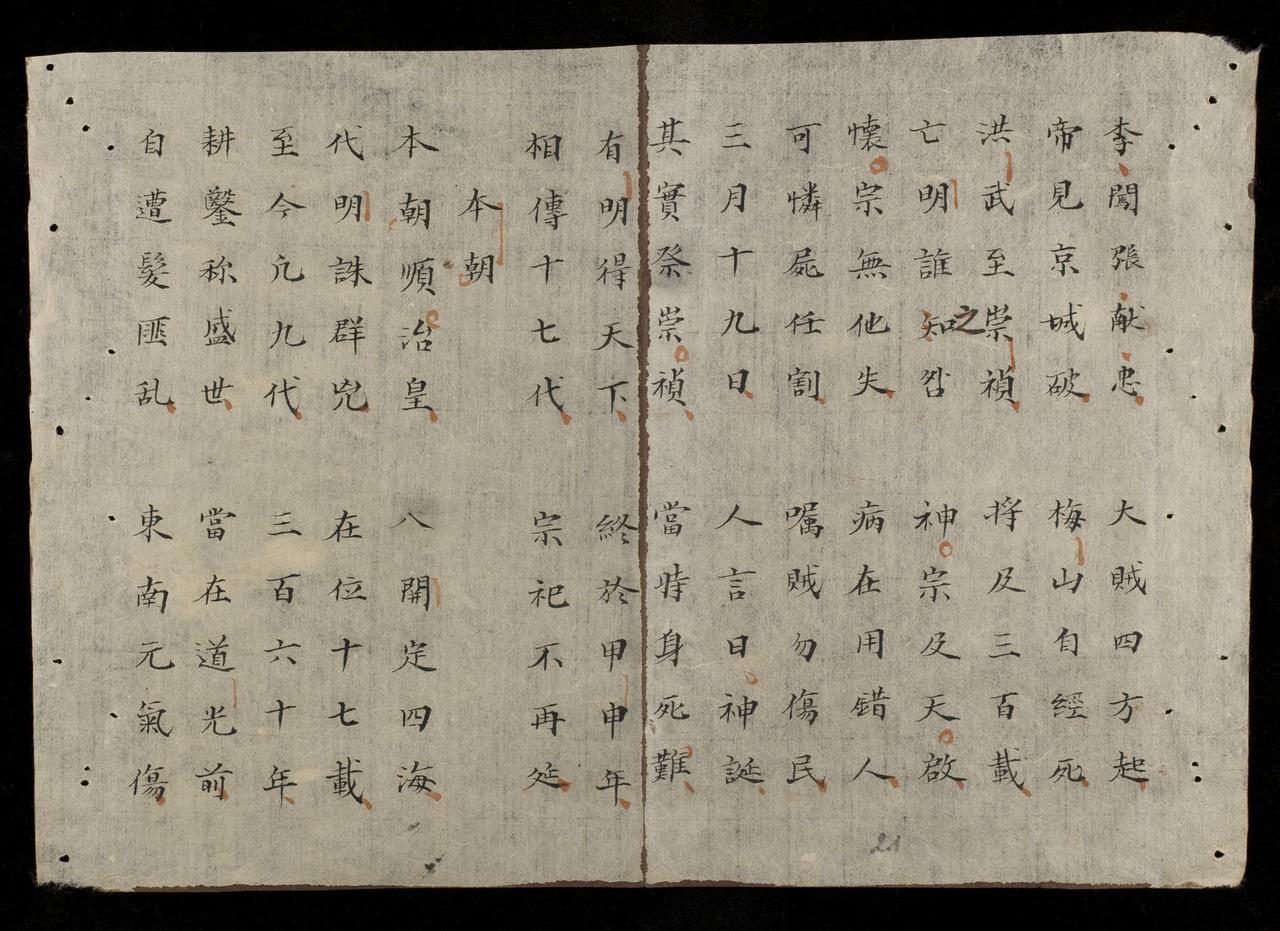 李闖張献忠 大賊四方起
帝見京城破 梅山自經死
洪武至崇禎 将及三百載
亡明誰知之咎 神宗及天啟
懷宗無他失 病在用錯人
可憐屍任割 嘱賊勿傷民
三月十九日 人言日神誕
其實祭崇禎 當時身死難
有明得天下 終於甲申年
相傳十七代 宗祀不再延
本朝
本朝順治皇 八開定四海
代明誅群兇 在位十七載
至今凢九代 三百六十年
耕鑿称盛世 當在道光前
自遭髮匪乱 東南元氣傷
21